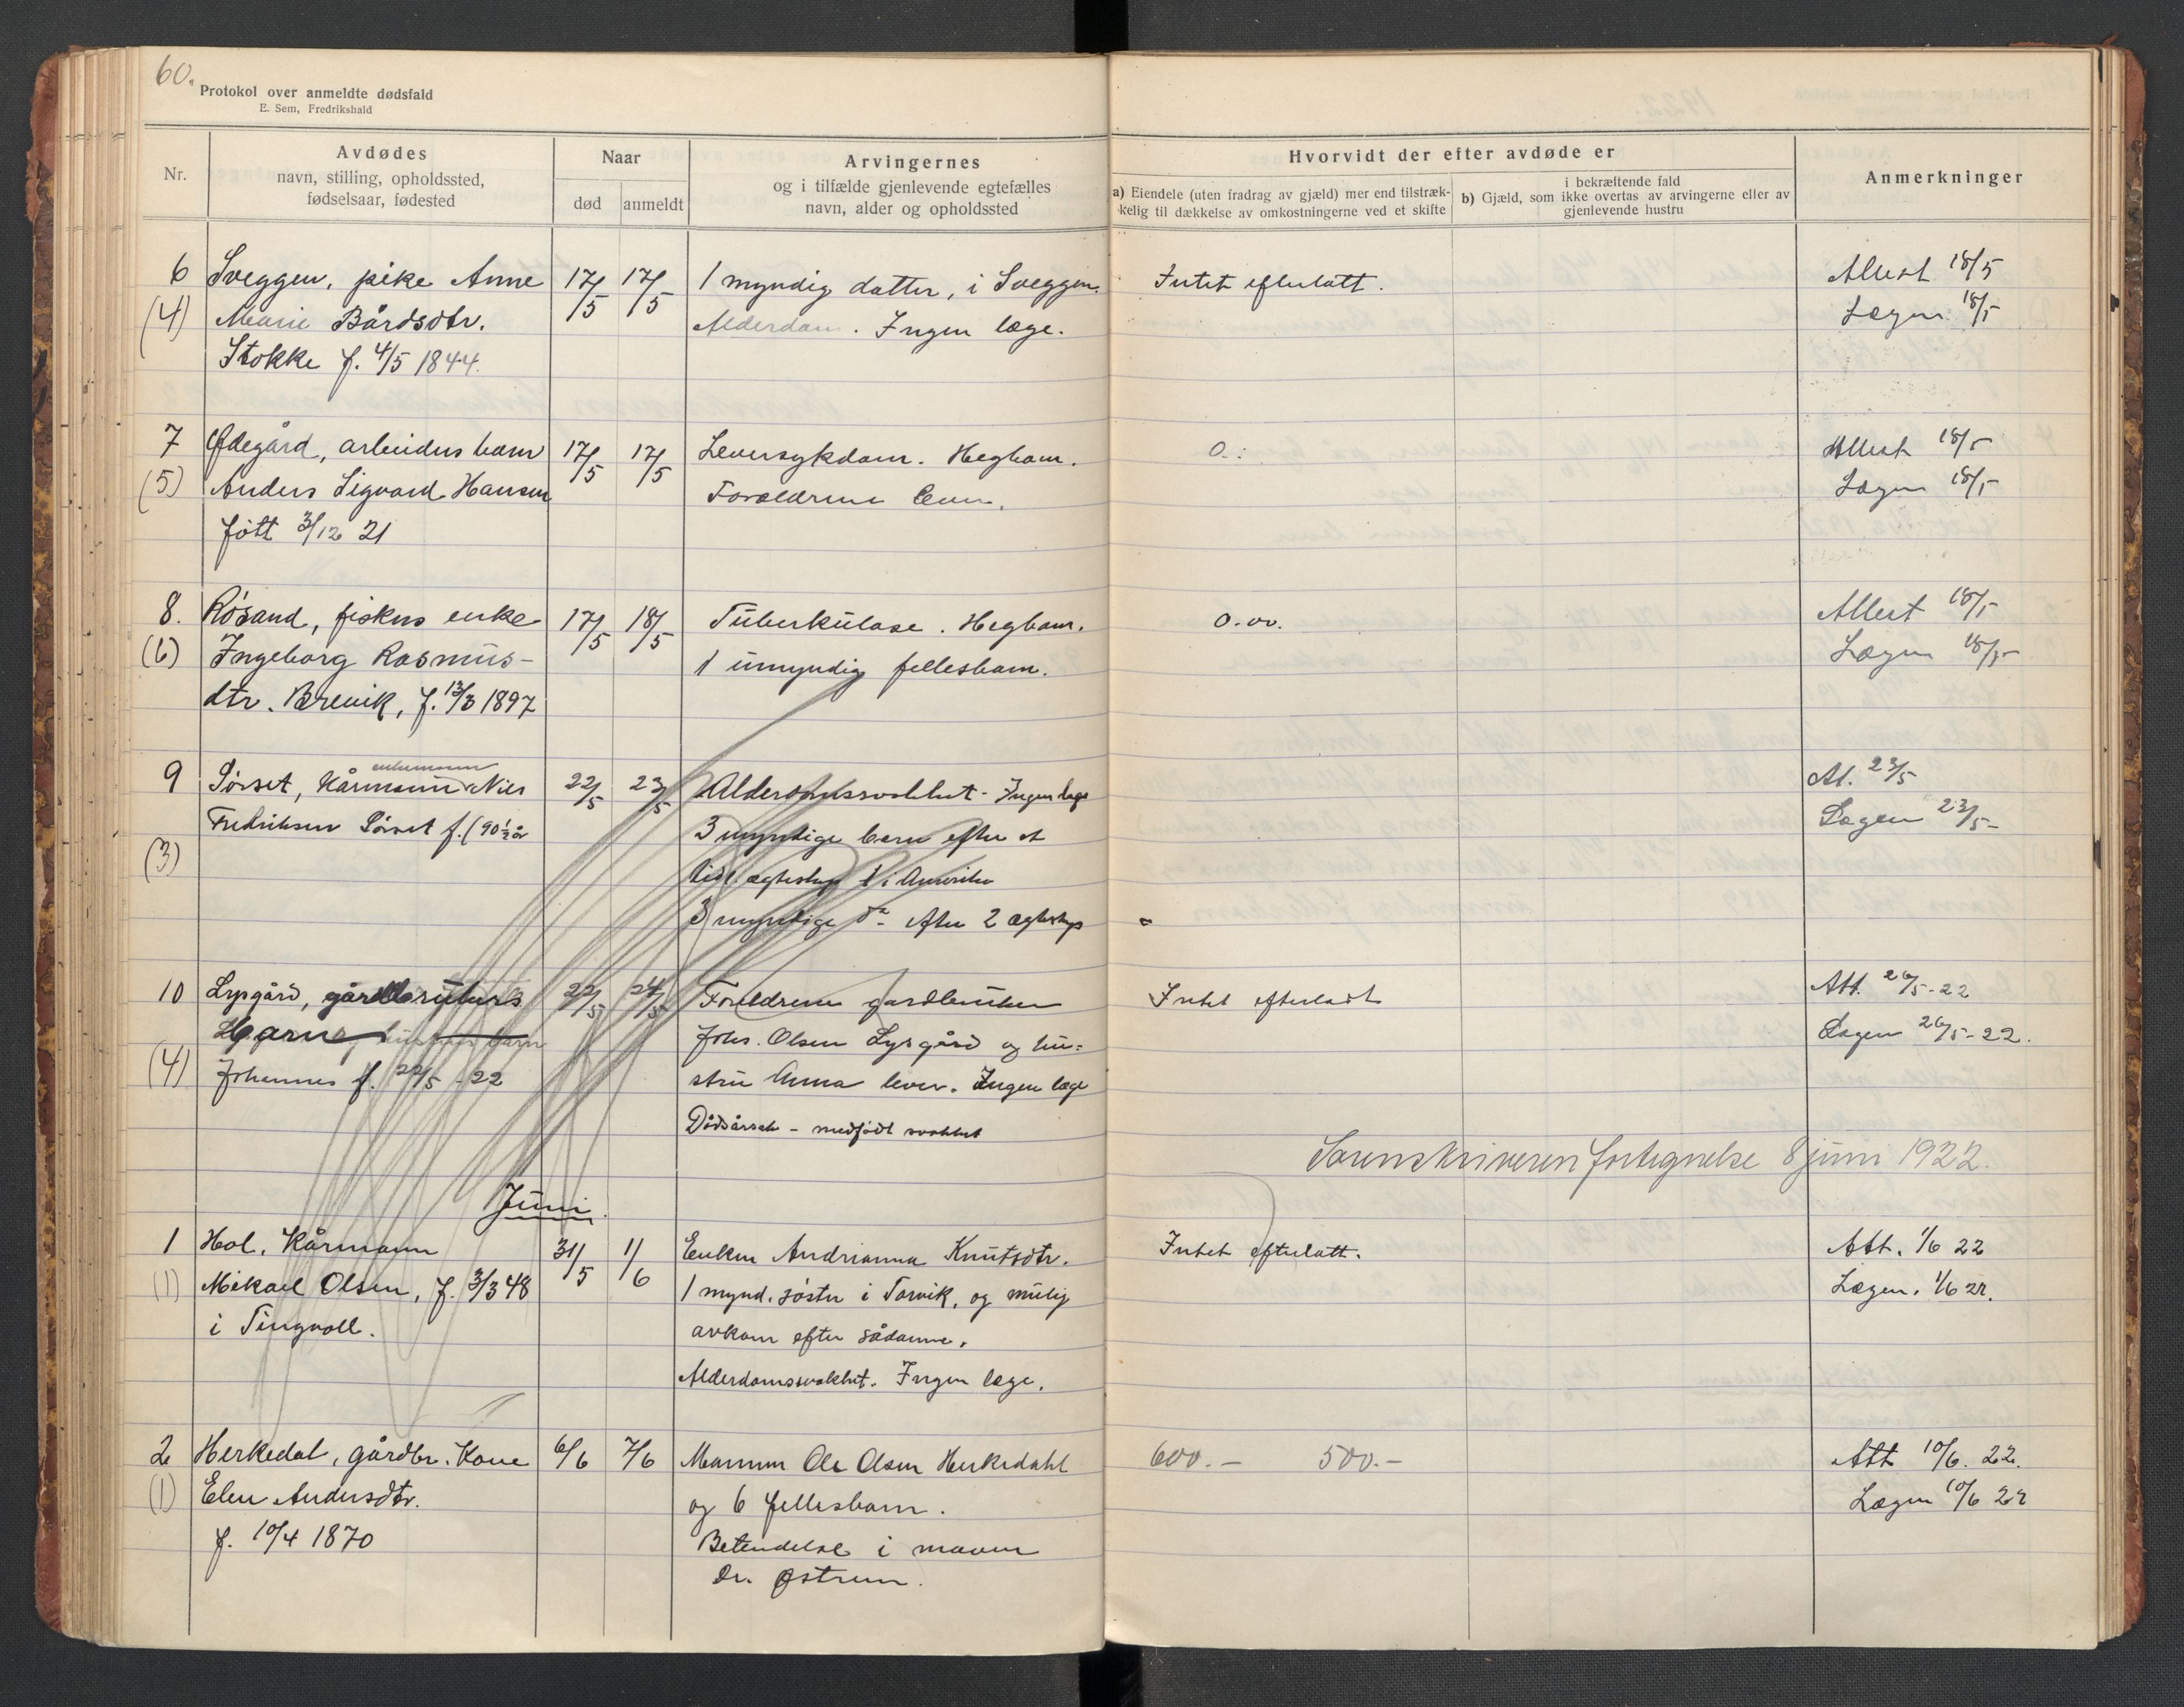 60.
Protokol over anmeldte dødsfald
E. Sem, Fredrikshald
Nr.
Avdødes
navn, stilling, opholdssted,
fødselsaar, fødested
Naar
død
anmeldt
Arvingernes
og i tilfælde gjenlevende egtefælles
navn, alder og opholdssted
Hvorvidt der efter avdøde er
a) Eiendele (uten fradrag av gjæld) mer end tilstræk-
kelig til dækkelse av omkostningerne ved et skifte
i bekræftende fald
b) Gjæld, som ikke overtas av arvingerne eller av
gjenlevende hustru
Anmerkninger
6 Sveggen, pike Anne 17/5 17/5 1 myndig datter, i Sveggen. Intet efterlatt. Attest 18/5
(4) Marie Bårdsdtr. Alderdom. Ingen læge. Lægen 18/5
Stokke f. 4/5 1844.
7 Ødegård, arbeiders barn 17/5 17/5 Leversykdom. Hegbom. 0.: Attest 18/5
(5) Anders Sigvard Hansen Forældrene lever. Lægen 18/5
født 3/12 21
8. Rösand, fiskers enke 17/5 18/5 Tuberkulose. Hegbom. 0.00. Attest 18/5
(6) Ingeborg Rasmus- 1 umyndig fellesbarn. Lægen 18/5
dtr. Brevik, f. 13/3 1897
enkemann
9 Sørset, Kårmann Nils 22/5 23/5 Alderdomssvakhet - Ingen læge At. 23/5
Fredriksen Sørset f. (90½ år 3 myndige barn efter et Lægen 23/5
(3) tidl. ægteskap 1 i Amerika
3 myndige do efter 2 ægteskap
10 Lysgård, gårdbrukers 22/5 24/5 Foreldrene gardbruker Intet efterladt Att. 26/5-22
barn Johs. Olsen Lysgård og hu- Lægen 26/5-22.
(4) Johannes f. 22/5 -22 stru Anna lever. Ingen læge
Dødsårsak - medfødt svakhet
Sorenskriveren fortegnelse 8 juni 1922.
Juni.
1 Hol, Kårmann 31/5 1/6 Enken Andrianna Knutsdtr. Intet efterlatt. Att. 1/6 22
(1) Mikael Olsen, f. 3/3 48 1 mynd. søster i Torvik, og mulig Lægen. 1/6 22.
i Tingvoll. avkom efter sådanne.
Alderdomssvakhet. Ingen læge.
2 Herkedal, gårdbr. Kone 6/6 7/6 Mannen Ole Olsen Herkedahl 600.- 500.- Att 10/6. 22.
(1) Elen Andersdtr. og 6 fellesbarn. Lægen 10/6 22
f. 10/4 1870 Betendelse i maven
Dr. Østrem.